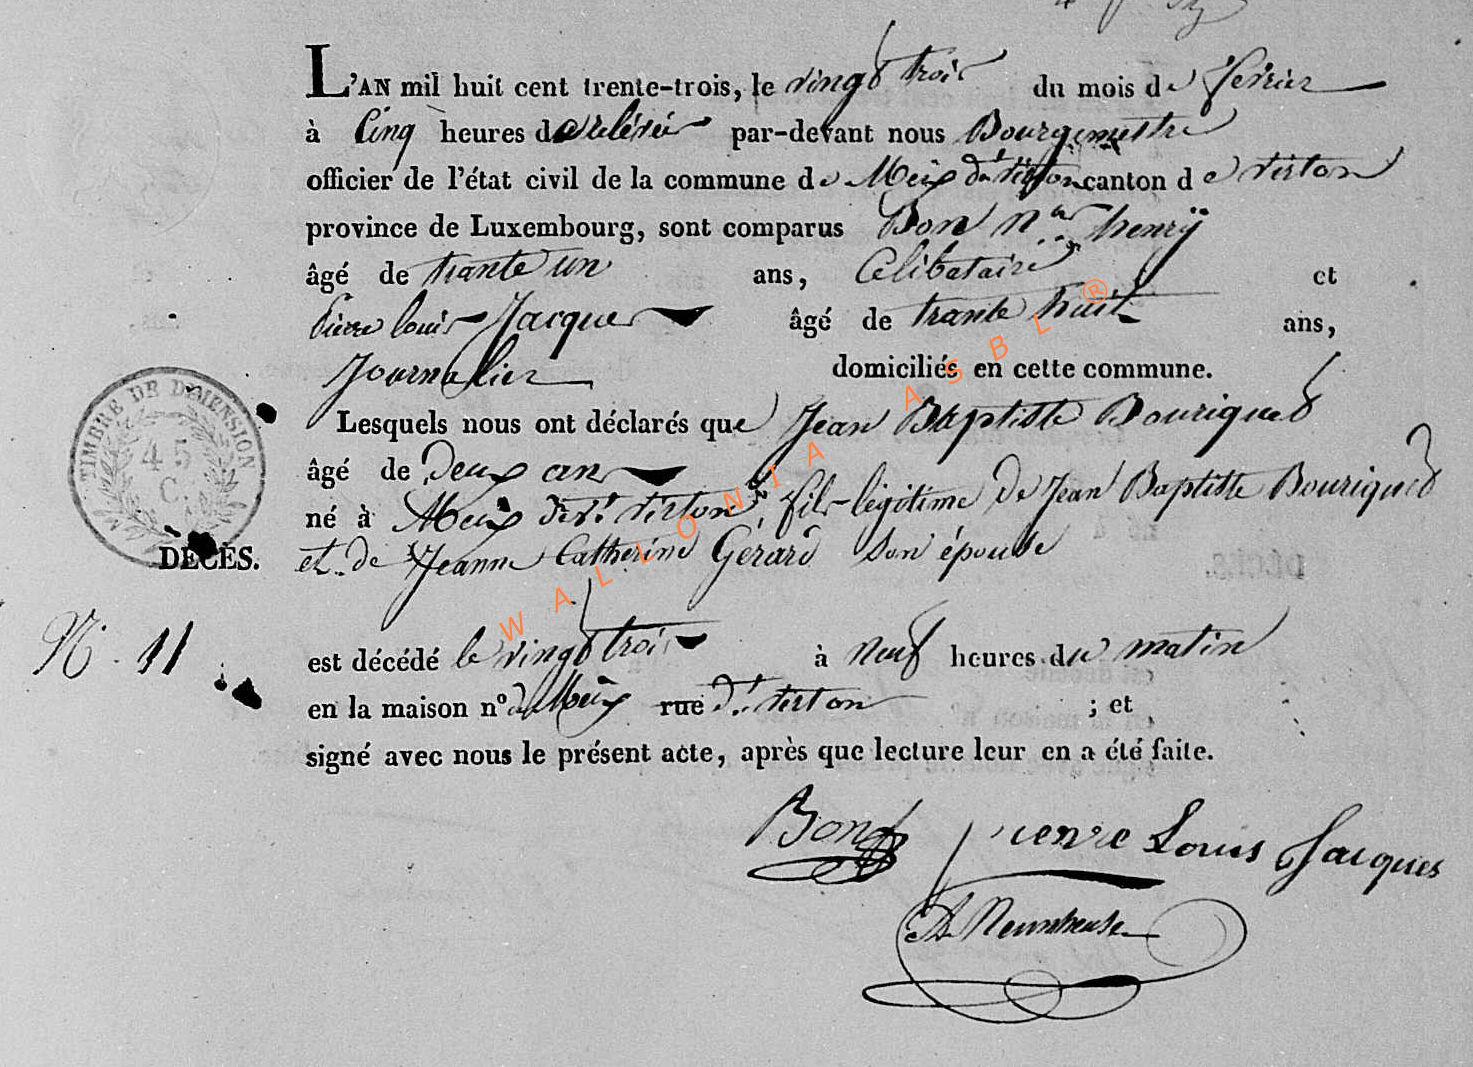 L'AN mil huit cent trente-trois, le vingt trois du mois de fevrier
à Cinq heures de relévée par-devant nous Bourgemestre
officier de l'état civil de la commune de Meix dt virton canton de virton
province de Luxembourg, sont comparus Bon henry
âgé de trante un ans, Celibataire et
Pierre louis Jacques âgé de trante huit ans,
Journalier domiciliés en cette commune.
Lesquels nous ont déclarés que Jean Baptiste Bouriquet
âgé de Deux ans
né à Meix devt virton, fils légitime de Jean Baptiste Bouriquet
et de Jeanne Catherine Gérard son épouse
est décédé le vingt trois à neuf heures du matin
en la maison n° de Meix rue dt virton ; et
signé avec nous le présent acte, après que lecture leur en a été faite.
TIMBRE DE DIMENSION
45
C.
DÉCÈS.
N. 11
Bon
pierre Louis Jacques
WALLONIA ASBL ®